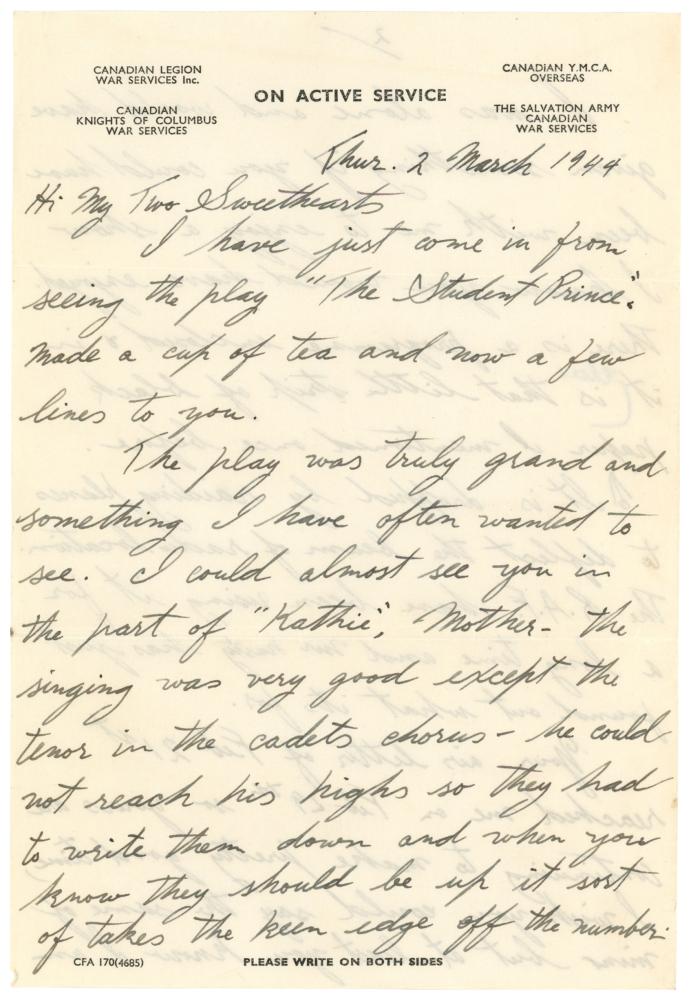 CANADIAN LEGION
WAR SERVICES Inc.
CANADIAN
KNIGHTS OF COLUMBUS
WAR SERVICES
ON ACTIVE SERVICE
CANADIAN Y.M.C.A.
OVERSEAS
THE SALVATION ARMY
CANADIAN
WAR SERVICES
Thur. 2 March 1944
Hi My Two Sweethearts
I have just come in from
seeing the play "The Student Prince".
made a cup of tea and now a few
lines to you.
The play was truly grand and
something I have often wanted to
see. I could almost see you in
the part of "Kathie", Mother - the
singing was very good except the
tenor in the cadets chorus - he could
not reach his highs so they had
to write them down and when you
know they should be up it sort
of takes the keen edge off the number.
CFA 170(4685)
PLEASE WRITE ON BOTH SIDES